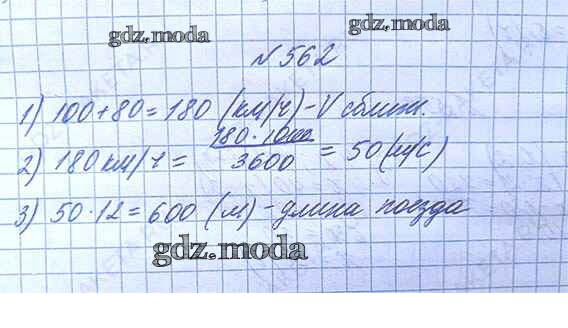 gdz.moda
№562
1) 100+80=180 (км/ч) - V сближ.
2) 180 км/ч = 180·1000/3600 = 50 (м/с)
3) 50·12=600 (м) - длина поезда
gdz.moda